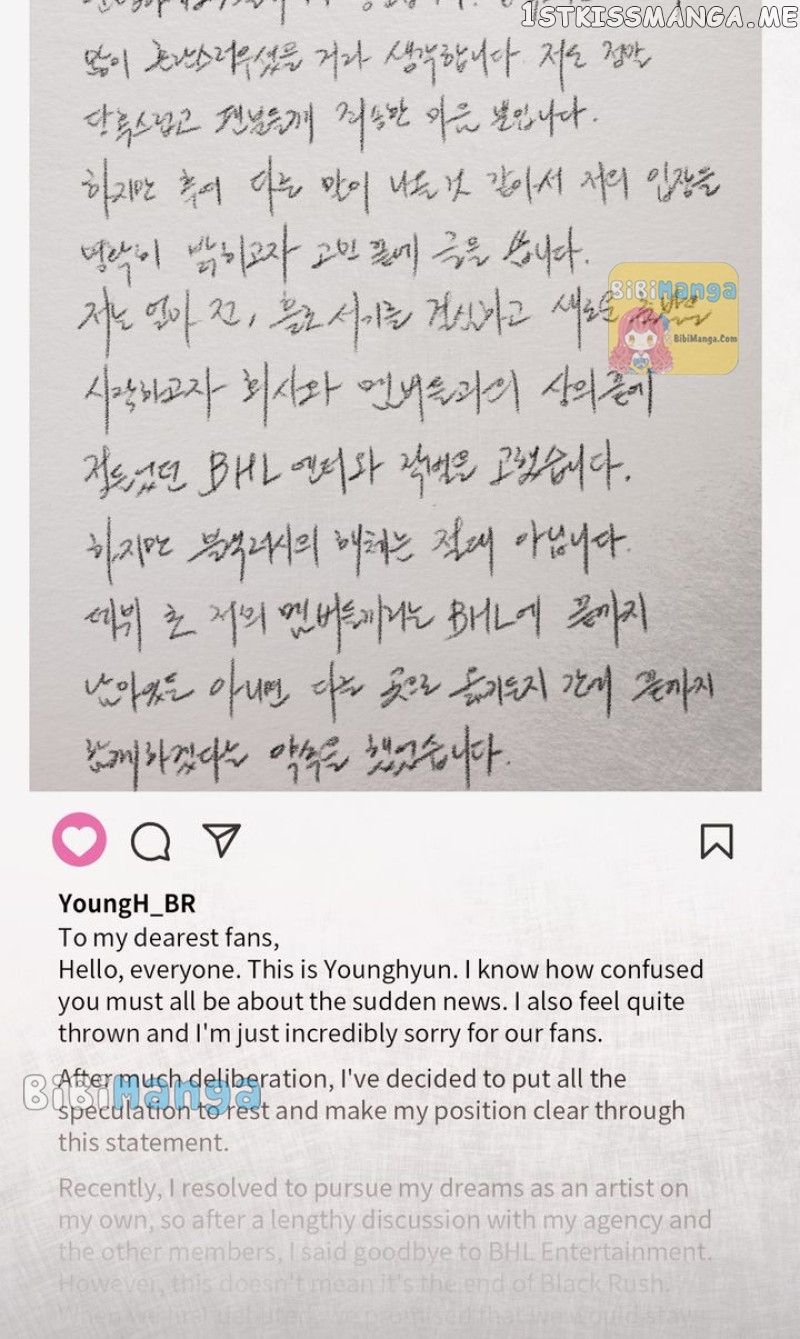 1STKISSMANGA.ME
많이 혼란스러우셨을 거라 생각합니다. 저도 정말
당혹스럽고 팬분들께 죄송한 마음 뿐입니다.
하지만 후에 다른 말이 나올것 같아서 저의 입장을
명확히 밝히고자 고민 끝에 글을 씁니다.
저는 얼마 전, 홀로서기를 결심하고 새로운
BiBiManga
BibiManga.Com
시작하고자 회사와 멤버들과의 상의끝에
정들었던 BHL 엔터와 작별을 고했습니다.
하지만 블랙러시의 해체는 절대 아닙니다.
데뷔 초 저의 멤버들끼리는 BHL에 끝까지
남아있든 아니면 다른 곳으로 옮기든지 간에 끝까지
함께하겠다는 약속을 했었습니다.
YoungH_BR
To my dearest fans,
Hello, everyone. This is Younghyun. I know how confused
you must all be about the sudden news. I also feel quite
thrown and I'm just incredibly sorry for our fans.
After much deliberation, I've decided to put all the
BiBiManga
speculation to rest and make my position clear through
this statement.
Recently, I resolved to pursue my dreams as an artist on
my own, so after a lengthy discussion with my agency and
the other members, I said goodbye to BHL Entertainment.
However, this doesn't mean it's the end of Black Rush.
When we first debuted, we promised that we would stay